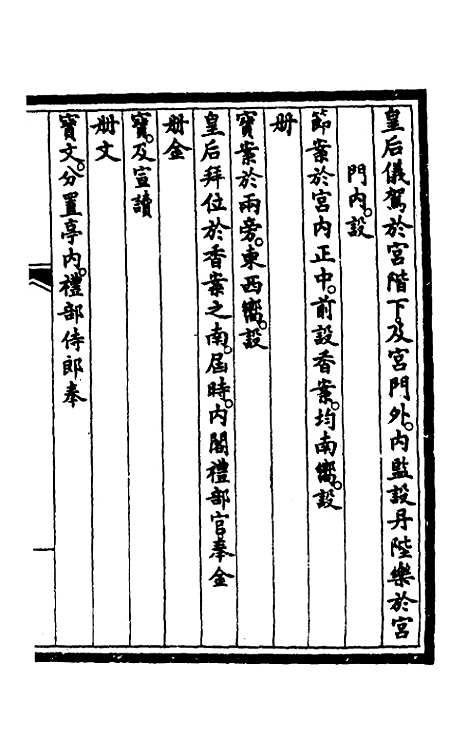 皇后儀駕於宮階下。及宮門外。內監設丹陛樂於宮
門內。設
節案於宮內正中。前設香案。均南嚮。設
册
寶案於兩旁。東西嚮。設
皇后拜位於香案之南。屆時。內閣禮部官奉金
册金
寶。及宣讀
册文
寶文。分置亭內。禮部侍郎奉